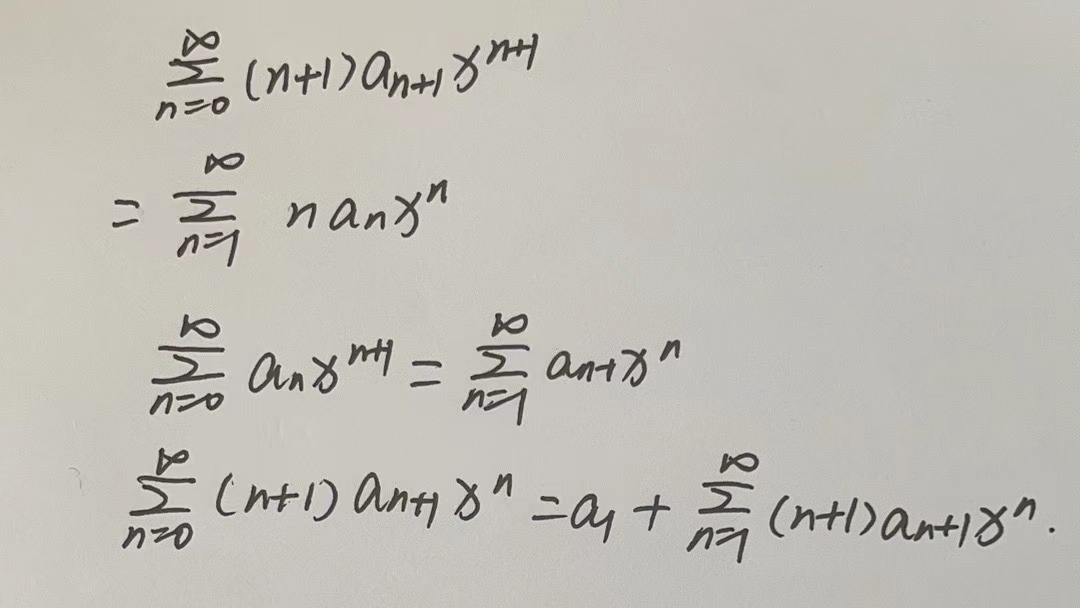 \sum_{n=0}^{\infty} (n+1) a_{n+1} x^{n+1}
= \sum_{n=1}^{\infty} n a_n x^n
\sum_{n=0}^{\infty} a_n x^{n+1} = \sum_{n=1}^{\infty} a_{n-1} x^n
\sum_{n=0}^{\infty} (n+1) a_{n+1} x^n = a_1 + \sum_{n=1}^{\infty} (n+1) a_{n+1} x^n.